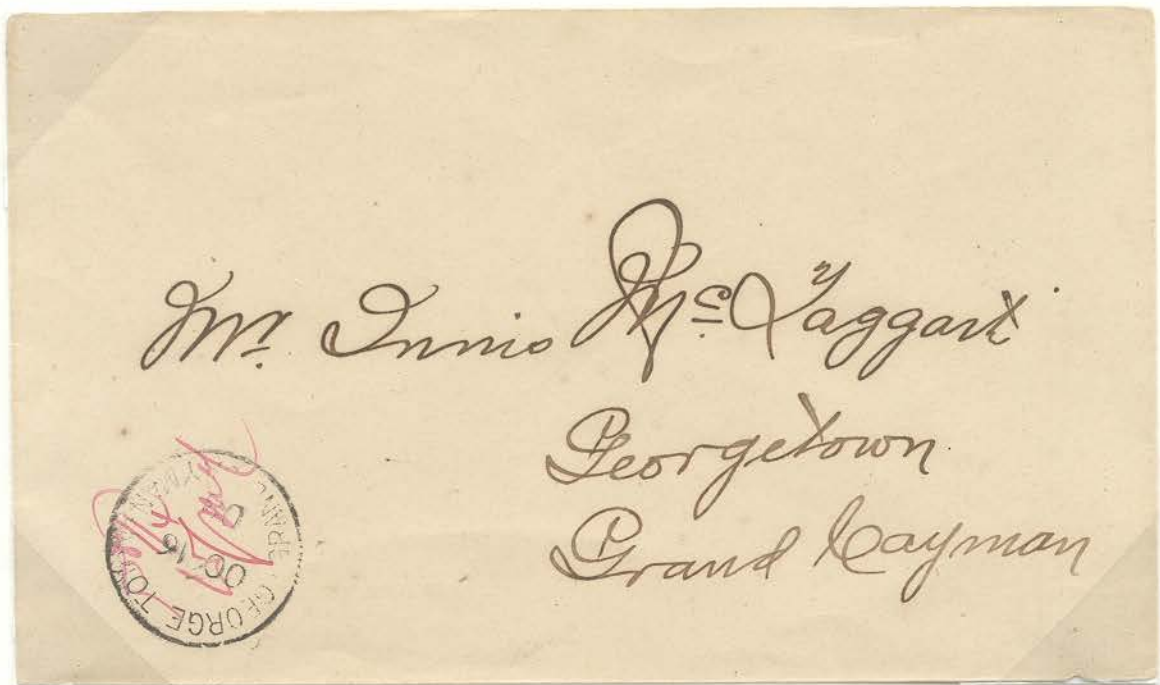 Mr. Innis McTaggart
Georgetown
Grand Cayman
GEORGE TOWN
GRAND CAYMAN
OC 16